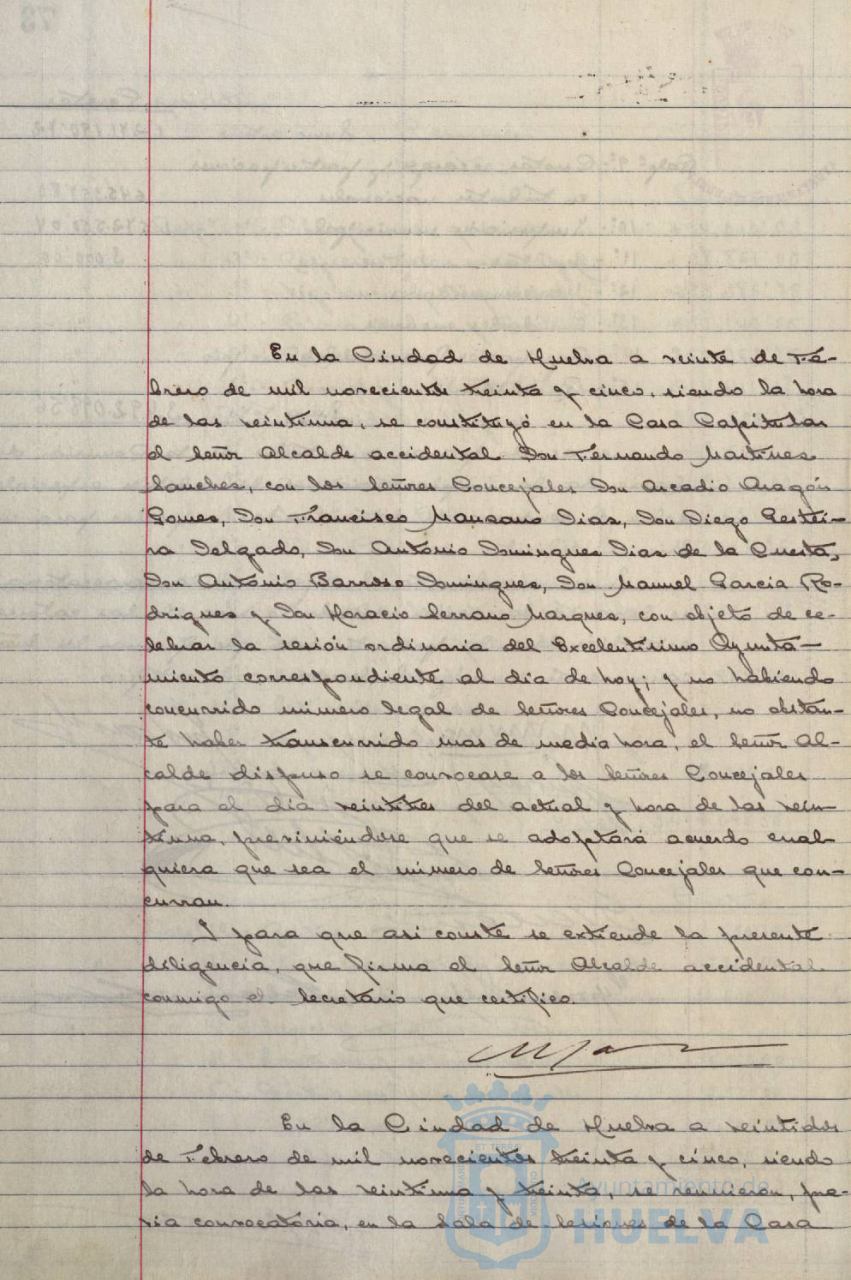 En la Ciudad de Huelva a veinte de Fe-
brero de mil novecientos treinta y cinco, siendo la hora
de las veintiuna, se constituyó en la Casa Capitular
el Señor Alcalde accidental Don Fernando Martines
Sanches, con los Señores Concejales Don Arcadio Aragón
Gomes, Don Francisco Mansano Dias, Don Diego Gestei-
ra Delgado, Don António Domingues Dias de la Cuesta,
Don António Barroso Domingues, Don Manuel Garcia Ro-
drigues y Don Horacio Serrano Marques, con objeto de ce-
lebrar la sesión ordinaria del Excelentísimo Ayunta-
miento correspondiente al dia de hoy; y no habiendo
concurrido número legal de Señores Concejales, no obstan-
te haber transcurrido mas de media hora, el Señor Al-
calde dispuso se convocase a los Señores Concejales
para el dia veintitres del actual y hora de las vein-
tiuna, previniéndose que se adoptará acuerdo cual-
quiera que sea el número de Señores Concejales que con-
curran.
I para que asi conste se extiende la presente
diligencia, que firma el Señor Alcalde accidental
conmigo el Secretário que certifico.
En la Ciudad de Huelva a veintidos
de Febrero de mil novecientos treinta y cinco, siendo
la hora de las veintiuna y treinta, se reunieron, pre-
via convocatoria, en la Sala de Sesiones de la Casa
Ayuntamiento de
HUELVA